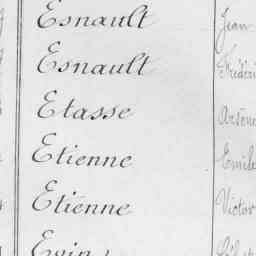 Esnault Jean
Esnault Frédéri
Etasse Arsène
Etienne Emile
Etienne Victor
Evin